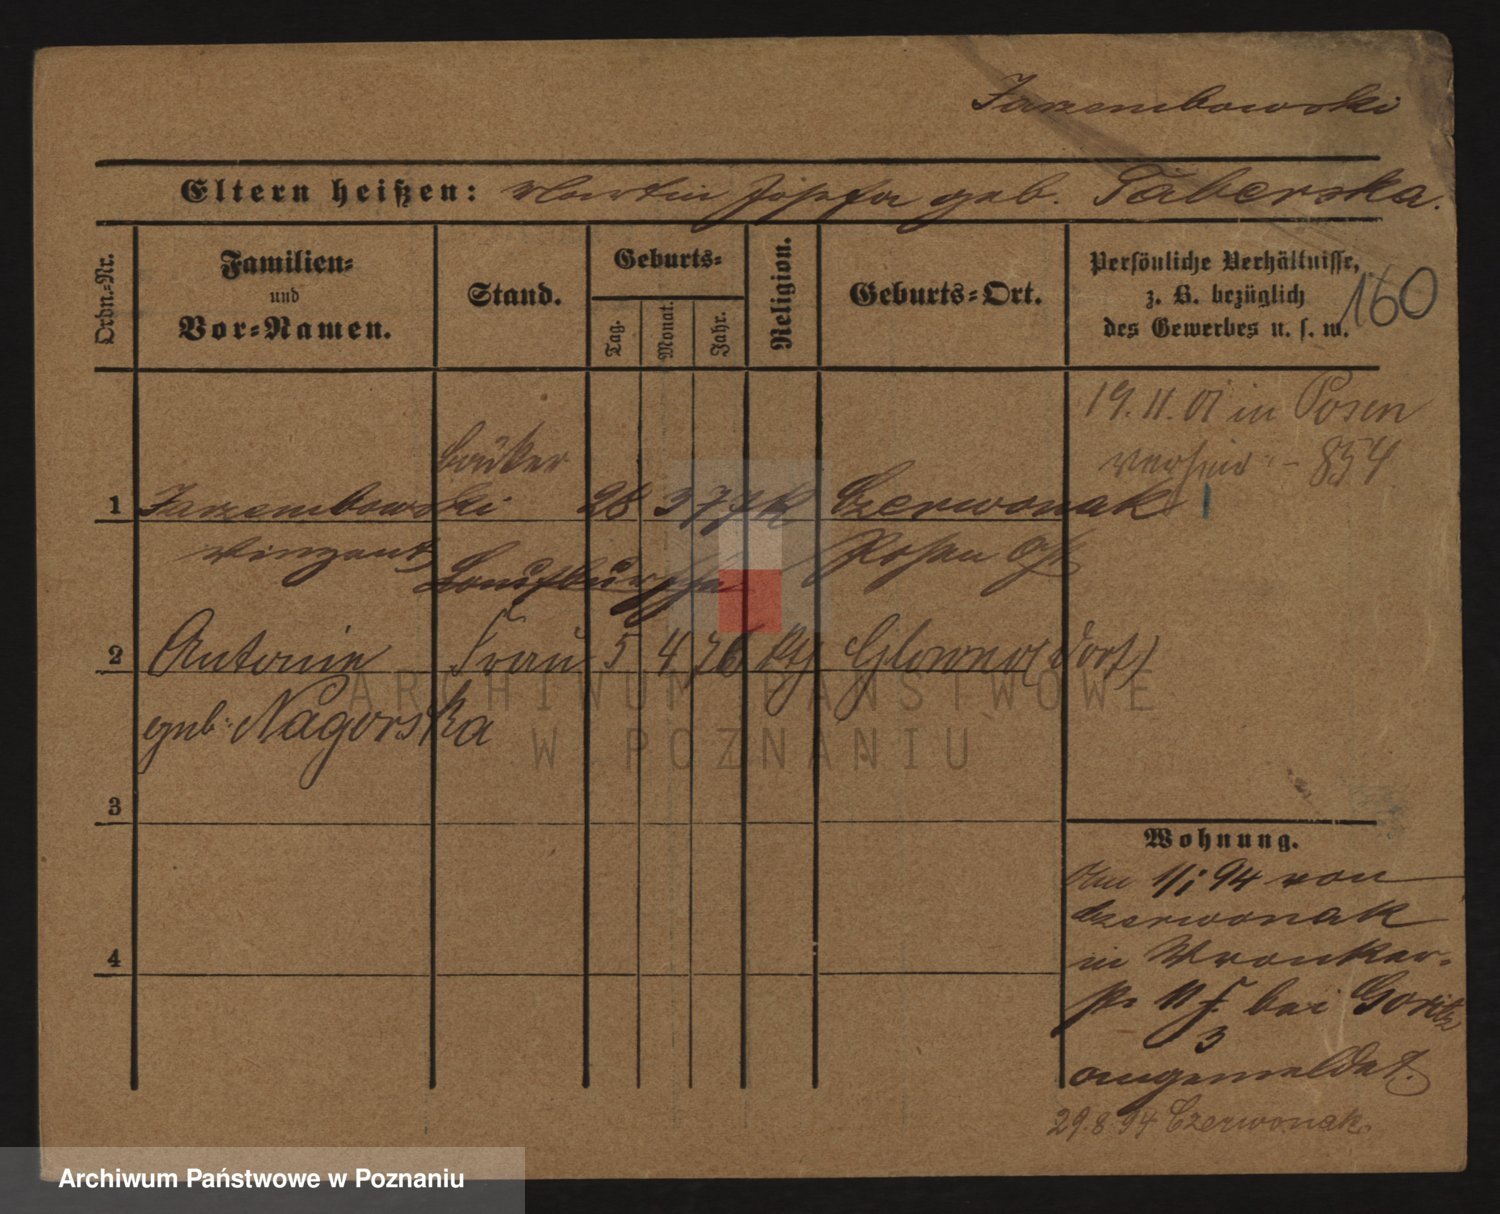 Jarzembowski
Eltern heißen: Martin Josefa geb. Taberska.
Ordn.-Nr.
Familien-
und
Vor-Namen.
Stand.
Geburts-
Tag.
Monat.
Jahr.
Religion.
Geburts-Ort.
Persönliche Verhältnisse,
z. B. bezüglich
des Gewerbes u. s. w.
160
19. 11. 01 in Posen
854
1 Jarzembowski 28 3 77 K Czerwonak
Vinzent Laufbursche Posen
2 Antonie Frau 5 4 76 Kth Glowno (Dorf)
geb. Nagorska
3
4
Wohnung.
Am 1/1 94 von
Czerwonak
in Wronker-
str 11 bei Goritz
3
angemeldet.
29.8.94 Czerwonak.
ARCHIWUM PAŃSTWOWE
W POZNANIU
Archiwum Państwowe w Poznaniu